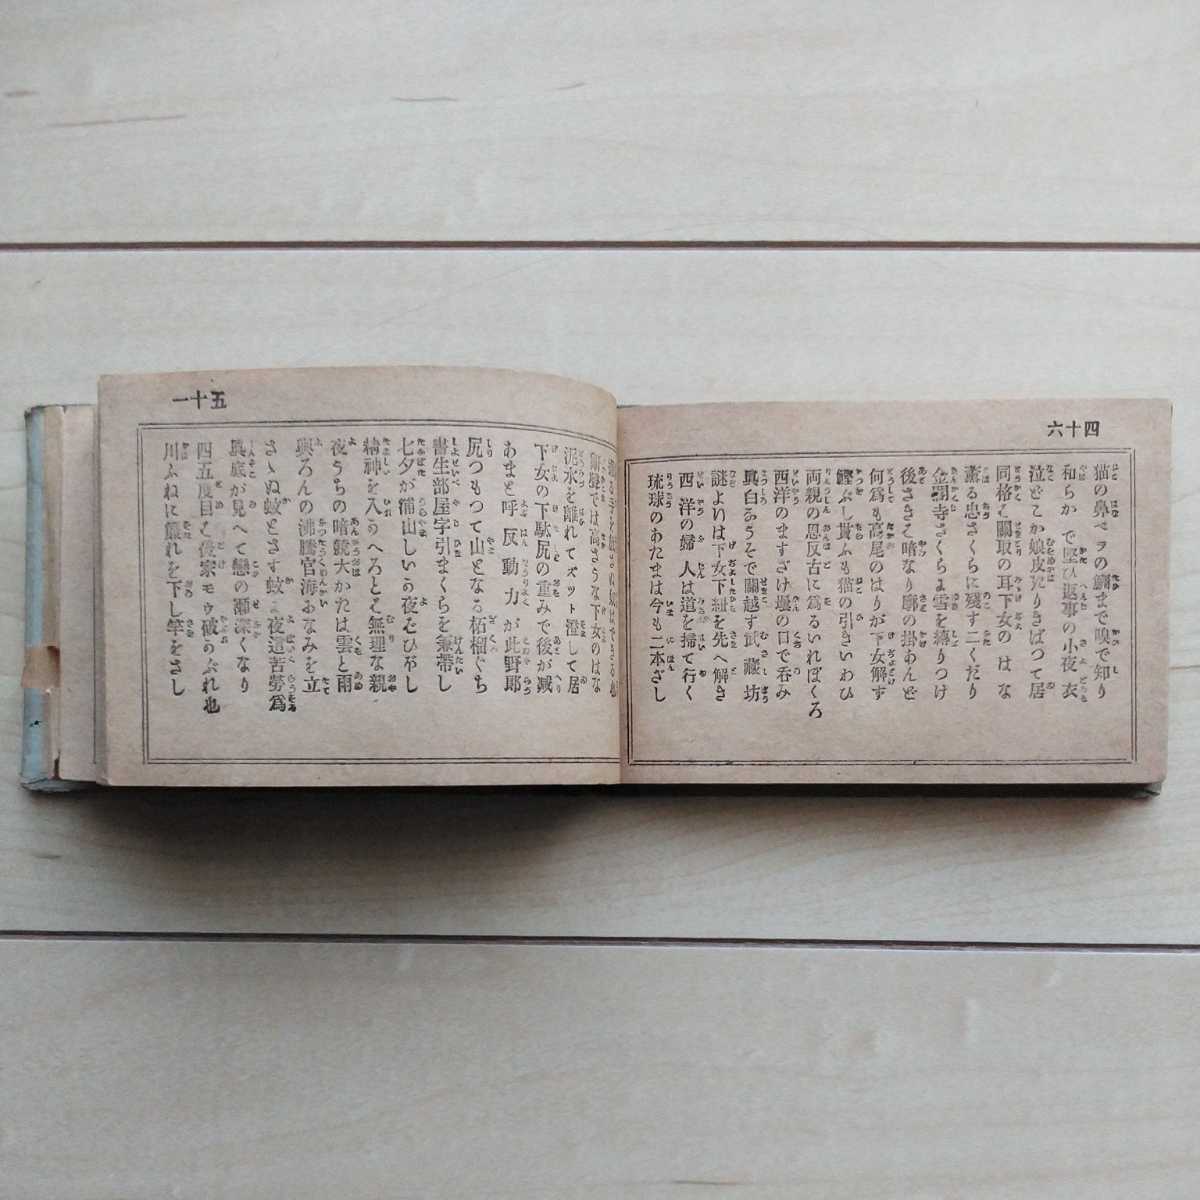 六十四
猫の鼻べヲの鯛まで嗅で知り
和らかで堅ひ返事の小夜衣
泣どこか娘皮たりきばつて居
同格は關取の耳下女のはな
薫る忠さくらに殘す二くだり
金閣寺さくらは雪を縛りつけ
後ささは暗なり廓の掛あんど
何爲も高尾のはりが下女解ず
鰹ぶし貰ふも猫の引きいわひ
両親の恩反古に爲るいれぼくろ
西洋のますざけ壜の口で呑み
眞白ろうそで關越す武藏坊
謎よりは下女下紐を先へ解き
西洋の婦人は道を掃て行く
琉球のあたまは今も二本ざし
一十五
では高さうな下女のはな
泥水を離れてズット澄して居
下女の下駄尻の重みで後が减り
あまと呼反動力が此野郎
尻つもつて山となる柘榴ぐち
書生部屋字引まくらを兼帶し
七夕が浦山しいう夜をひやし
精神を入うへろとは無理な親
夜うちの暗號大かたは雲と雨
興ろんの沸騰官海おなみを立
さゝぬ蚊とさす蚊は夜道苦勞爲
眞底が見へて戀の瀬深くなり
四五度目は侵家モウ破のぶれ也
川ふねに簾れを下し竿をさし